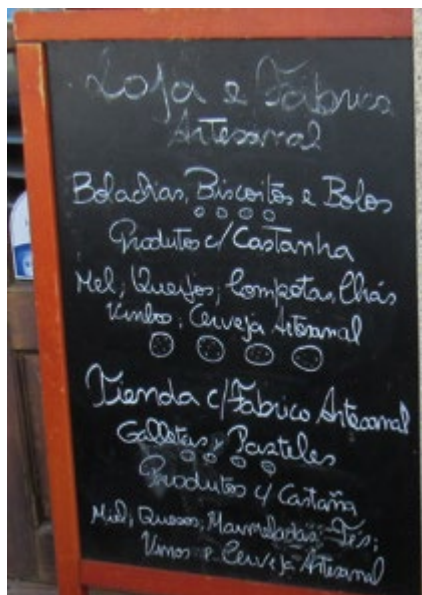 Loja e Fábrica
Artesanal
Bolachas, Biscoitos e Bolos
Produtos c/ Castanha
Mel; Queijos; Compotas, Chás
Vinho; Cerveja Artesanal
Tienda c/ Fabrico Artesanal
Galletas y Pasteles
Produtos c/ Castaña
Miel; Quesos; Marmeladas; Tés;
Vinos e Cerveja Artesanal